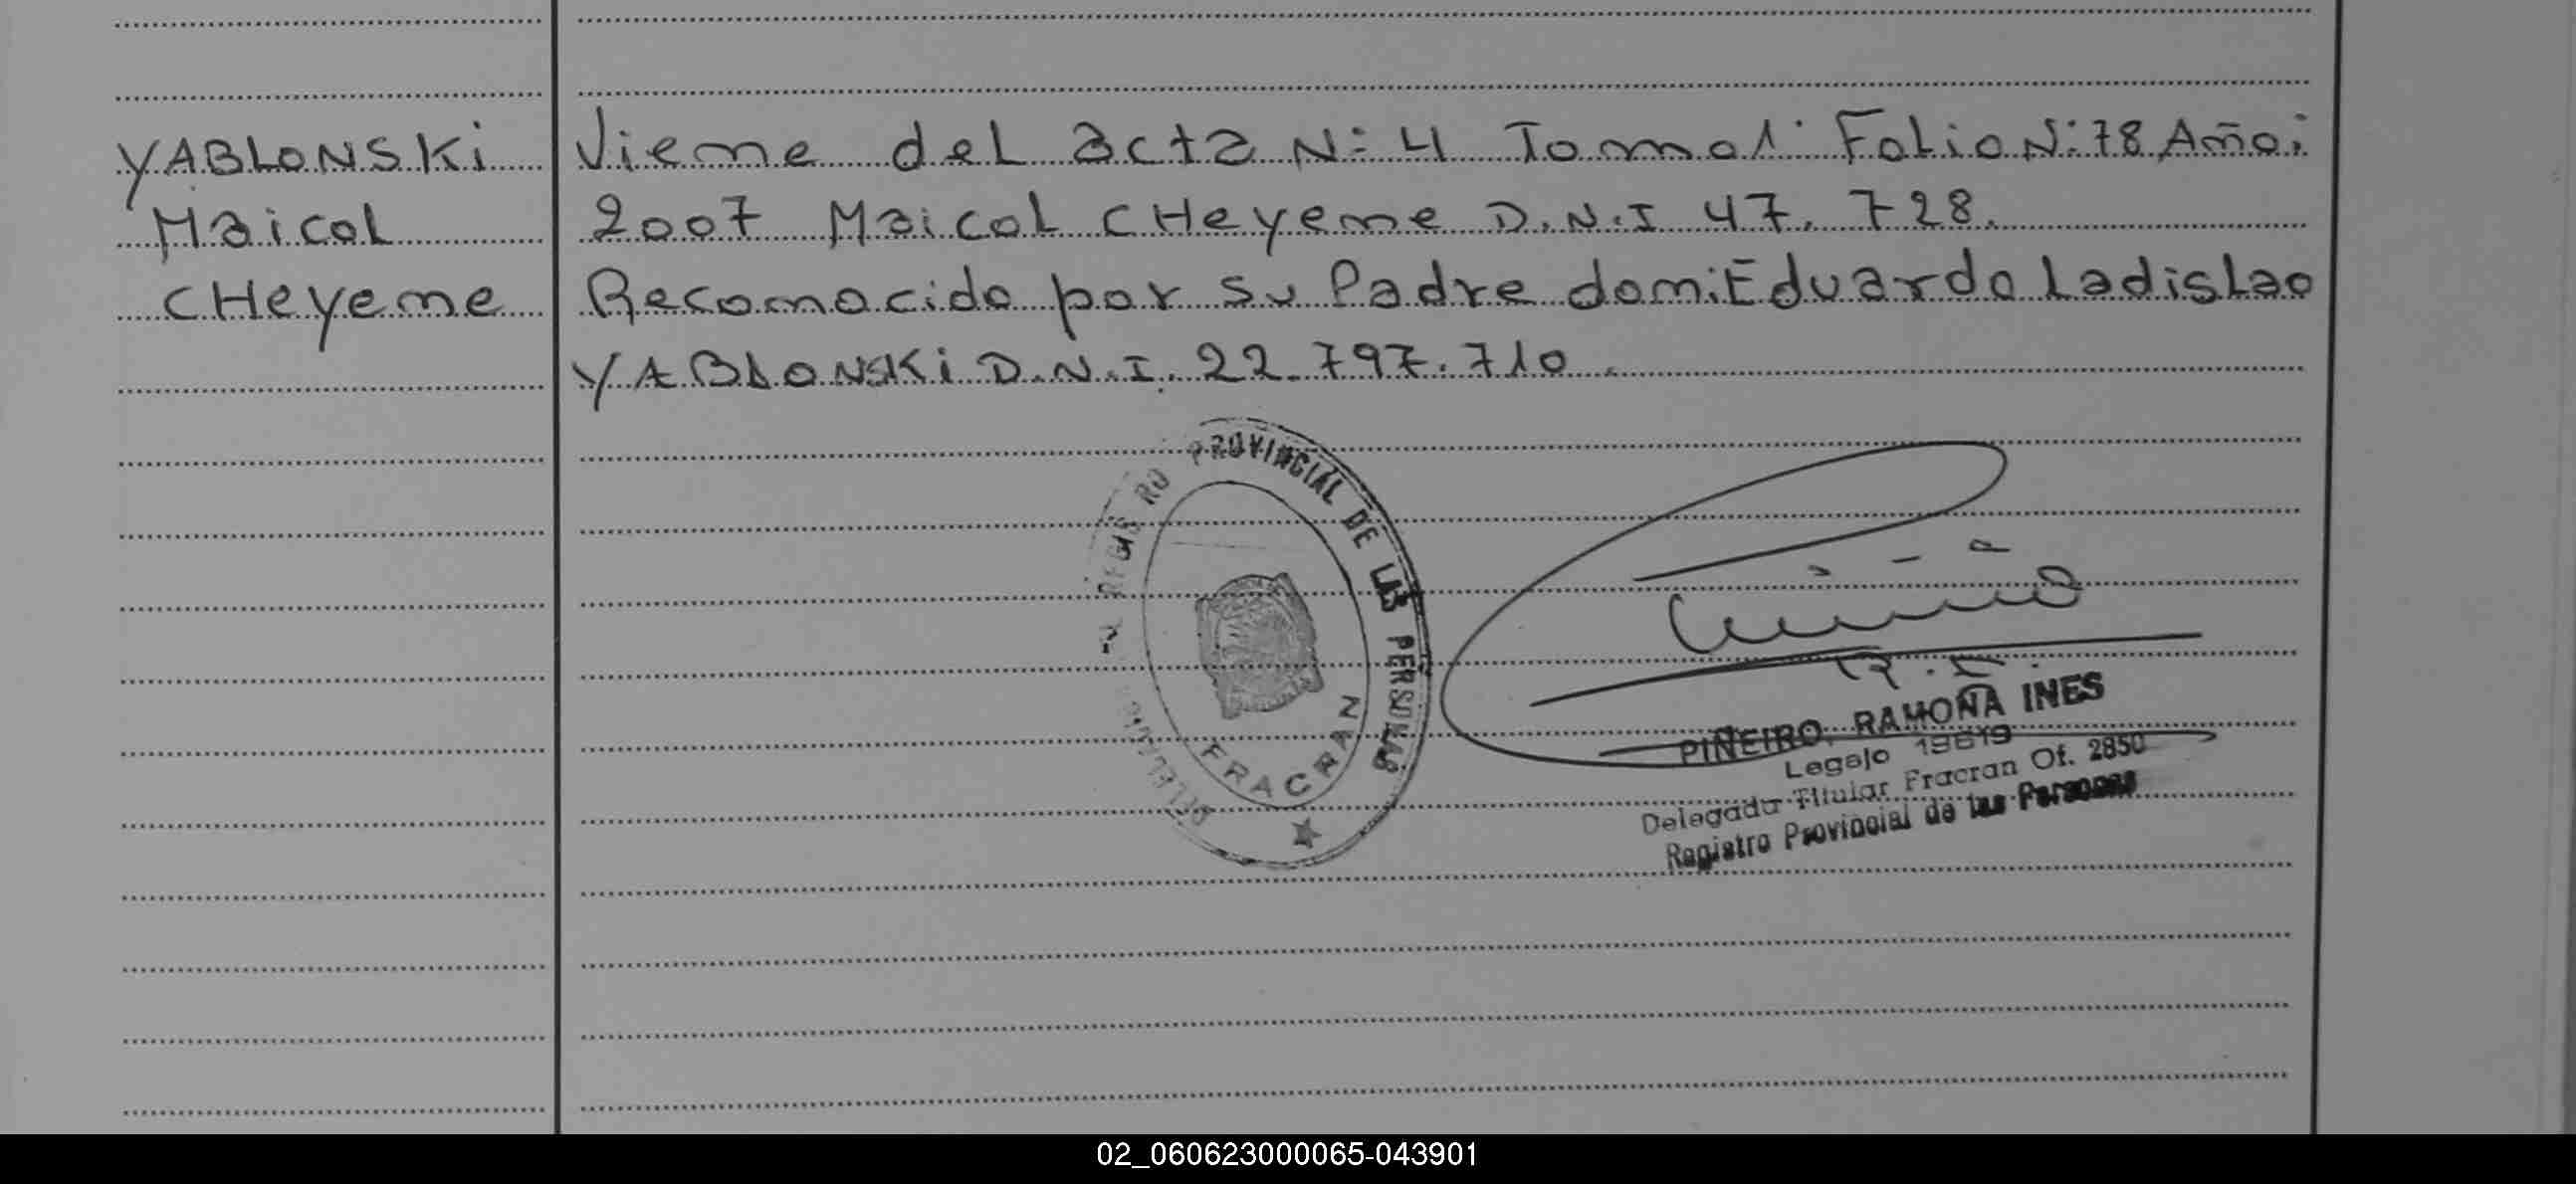 YABLONSKi
Maicol
CHeyeme
Viene del acta N: 4 Tomo 1 Folio N: 78 Año:
2007 Maicol CHeyeme D.N.I 47. 728.
Reconocido por su Padre don: Eduardo Ladislao
YABLONSKi D.N.I. 22.797.710.
PROVINCIAL DE LAS PERSONAS
FRACRAN
PIÑEIRO, RAMONA INES
Legajo 19619
Delegada Titular Fracran Of. 2850
Registro Provincial de las Personas
02_060623000065-043901